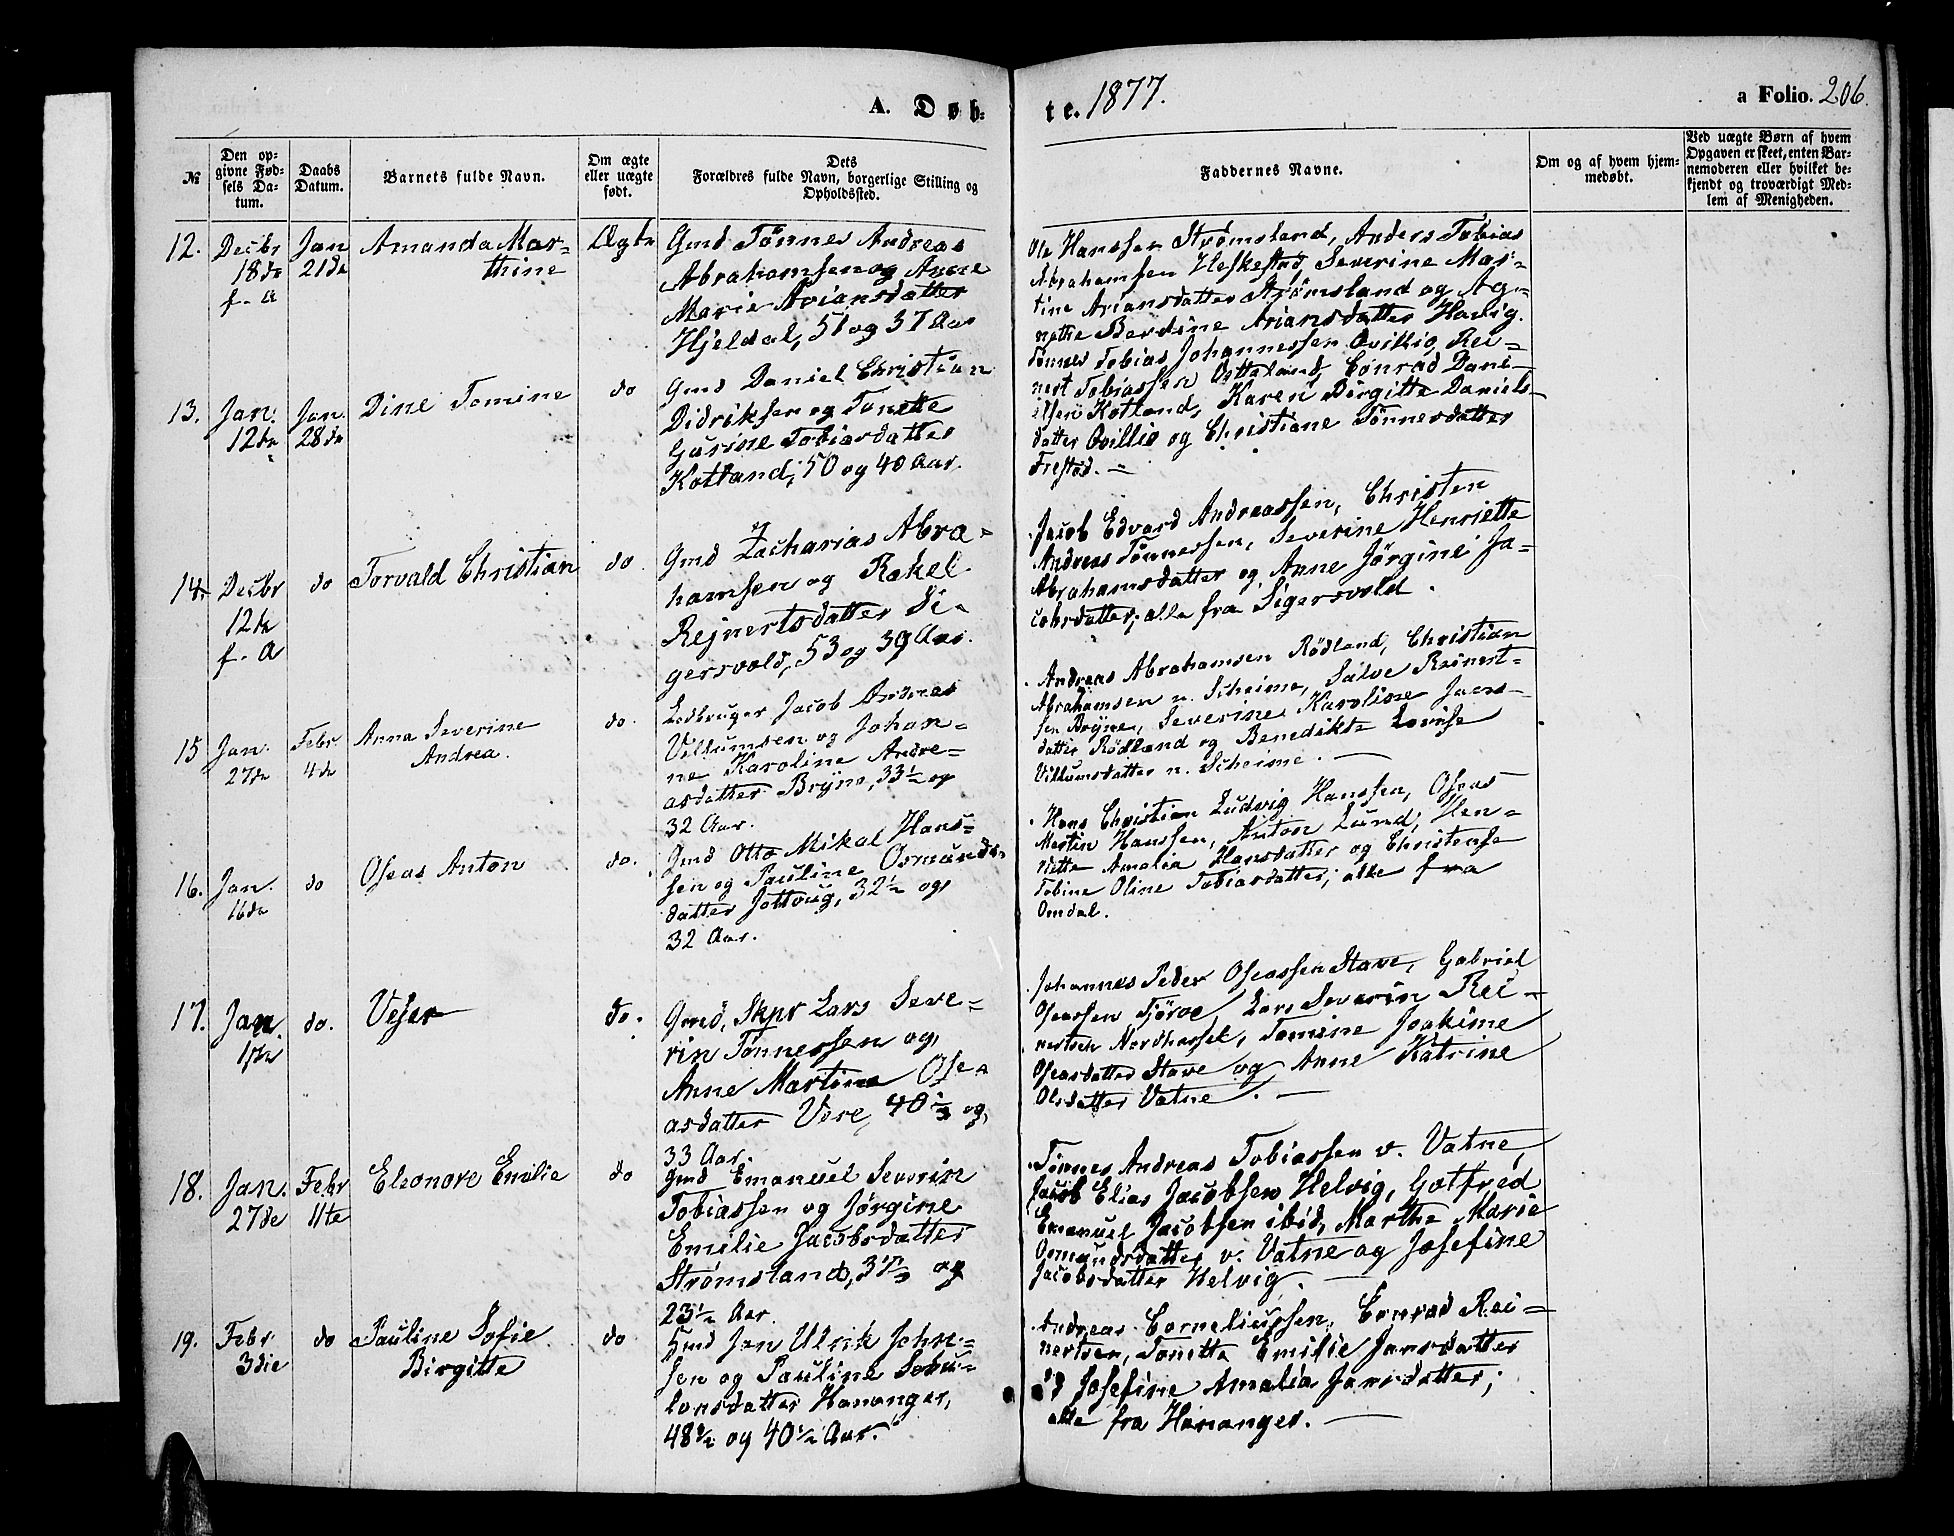 A. Døb-
te. 1877.
a Folio. 206.
№
Den op-
givne Fød-
sels Da-
tum.
Daabs
Datum.
Barnets fulde Navn.
Om ægte
eller uægte
født.
Dets
Forældres fulde Navn, borgerlige Stilling og
Opholdssted.
Faddernes Navne.
Om og af hvem hjem-
medøbt.
Ved uægte Børn af hvem
Opgaven er skeet, enten Bar-
nemoderen eller hvilket be-
kjendt og troværdigt Med-
lem af Menigheden.
12.
Decbr
18de
f. A
Jan
21de
Amanda Mar-
thine
Ægte
Gmd Tønnes Andreas
Abrahamsen og Anne
Marie Ariansdatter
Hjeldal, 51 og 37 Aar
Ole Hanssen Strømsland, Anders Tobias
Abrahamsen Heskestad, Severine Mar-
tine Ariansdatter Strømsland og Ag-
nethe Berdine Ariansdatter Hævig.
13.
Jan.
12te
Jan.
28de
Dine Tomine
do
Gmd Daniel Christian
Didriksen og Tonette
Gurine Tobiasdatter
Kotland, 50 og 40 Aar.
Tønnes Tobias Johannessen Qvillio, Rei-
nert Tobiassen Østteland, Conrad Dani-
elsen Kotland, Karen Birgitte Daniels-
datter Qvillio og Christiane Tønnesdatter
Frestad.
14.
Decbr
12te
f. A
do
Torvald Christian
do
Gmd Zacharias Abra-
hamsen og Rakel
Rejnertsdatter Si-
gersvold, 53 og 39 Aar.
Jacob Edvard Andreassen, Christen
Andreas Tønnessen, Severine Henriette
Abrahamsdatter og Anne Jørgine Ja-
cobsdatter; alle fra Sigersvold.
15
Jan.
27de
Febr
4de
Anna Severine
Andrea.
do.
Ledbruger Jacob Andreas
Villumsen og Johan-
ne Karoline Andre-
asdatter Bryne, 33½ og
32 Aar.
Andreas Abrahamsen Rødland, Christian
Abrahamsen n. Scheime, Salve Reinert-
sen Bryne, Severine Karoline Jacobs-
datter Rødland og Benedikte Lovise
Villumsdatter n. Scheime.
16.
Jan.
16de
do
Oseas Anton
do.
Gmd Otto Mikal Hans-
sen og Pauline Osmunds-
datter Jøttoug, 32½ og
32 Aar.
Hans Christian Ludvig Hanssen, Oseas
Martin Hanssen, Anton Lund, Hen-
riette Amalia Hansdatter og Christense
Tobine Oline Tobiasdatter; alle fra
Omdal.
17.
Jan.
do.
do.
Gmd, Skpr Lars Seve-
rin Tønnessen og
Anne Martine Ose-
asdatter Vere, 40½ og
33 Aar.
Johannes Peder Oseassen Stave, Gabriel
Oseassen Tjørve, Lars Severin Rei-
nertsen Nordhassel, Tomine Joakime
Oseasdatter Stave og Anne Katrine
Olsdatter Vatne.
18.
Jan.
27de
Febr
11te
Eleonore Emilie
do
Gmd Emanuel Severin
Tobiassen og Jørgine
Emilie Jacobsdatter
Strømsland, 37½ og
23½ Aar.
Tønnes Andreas Tobiassen v. Vatne,
Jacob Elias Jacobsen Helvig, Gotfred
Emanuel Jacobsen ibid, Marthe Marie
Osmundsdatter v. Vatne og Josefine
Jacobsdatter Helvig.
19.
Febr
3die
do
Pauline Sofie
Birgitte
do
Hmd Jan Ulrik John-
sen og Pauline Sebu-
lonsdatter Hananger,
48½ og 40½ Aar.
Andreas Corneliussen, Conrad Rei-
nertsen, Tonette Emilie Jansdatter
og Josefine Amalia Jansdatter;
alle fra Hananger.